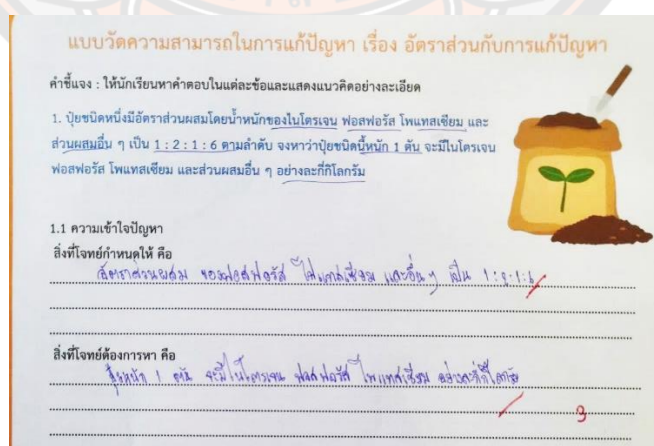 แบบวัดความสามารถในการแก้ปัญหา เรื่อง อัตราส่วนกับการแก้ปัญหา
คำชี้แจง : ให้นักเรียนหาคำตอบในแต่ละข้อและแสดงแนวคิดอย่างละเอียด
1. ปุ๋ยชนิดหนึ่งมีอัตราส่วนผสมโดยน้ำหนักของไนโตรเจน ฟอสฟอรัส โพแทสเซียม และ
ส่วนผสมอื่น ๆ เป็น 1 : 2 : 1 : 6 ตามลำดับ จงหาว่าปุ๋ยชนิดนี้หนัก 1 ตัน จะมีไนโตรเจน
ฟอสฟอรัส โพแทสเซียม และส่วนผสมอื่น ๆ อย่างละกี่กิโลกรัม
1.1 ความเข้าใจปัญหา
สิ่งที่โจทย์กำหนดให้ คือ
อัตราส่วนผสม ของฟอสฟอรัส โพแทสเซียม และอื่น ๆ เป็น 1:2:1:6
สิ่งที่โจทย์ต้องการหา คือ
หนัก 1 ตัน จะมีไนโตรเจน ฟอสฟอรัส โพแทสเซียม อย่างละกี่กิโลกรัม
3